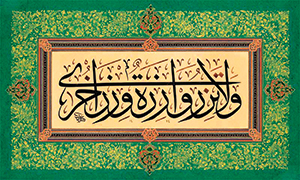 ولا تزر وازرة وزر أخرى